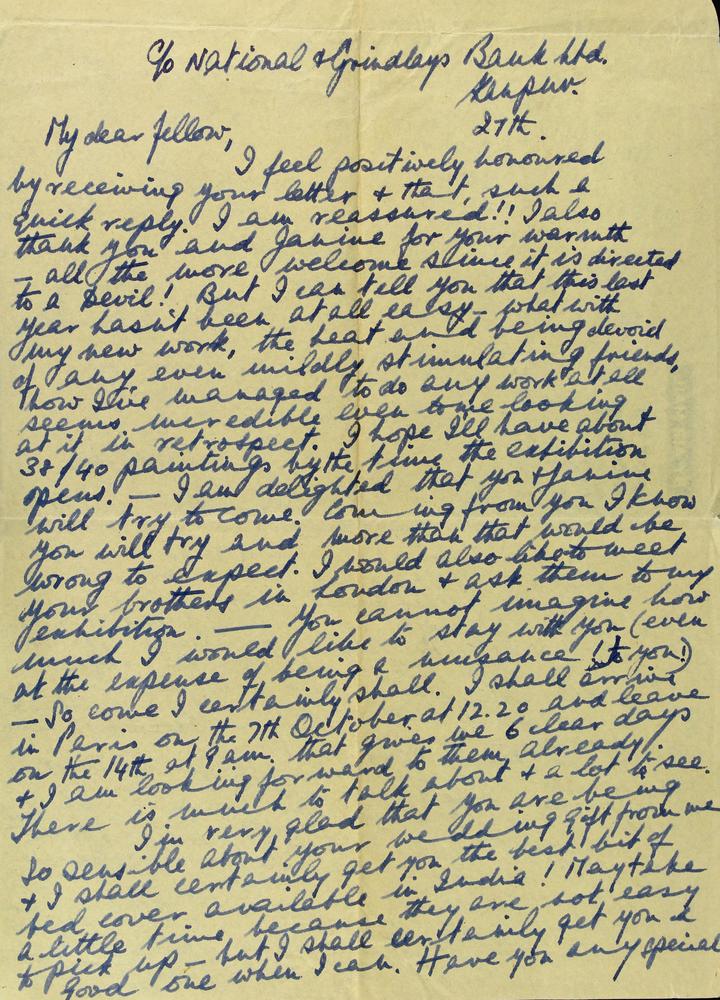 c/o National & Grindlays Bank Ltd.
Kanpur.
27th.
My dear fellow,
I feel positively honoured
by receiving your letter & that, such a
quick reply. I am reassured!! I also
thank you and Janine for your warmth
– all the more welcome since it is directed
to a Devil! But I can tell you that this last
year hasn't been at all easy – what with
my new work, the heat and being devoid
of any even mildly stimulating friends,
how I've managed to do any work at all
seems incredible even to me looking
at it in retrospect. I hope I'll have about
38/40 paintings by the time the exhibition
opens. — I am delighted that you & Janine
will try to come. Coming from you I know
you will try and more than that would be
wrong to expect. I would also like to meet
your brothers in London & ask them to my
exhibition. — You cannot imagine how
much I would like to stay with you (even
at the expense of being a nuisance! to you!)
— So come I certainly shall. I shall arrive
in Paris on the 7th October at 12.20 and leave
on the 14th at 9 am. that gives me 6 clear days
& I am looking forward to them, already!
There is much to talk about & a lot to see.
I'm very glad that you are being
so sensible about your wedding gift from me
& I shall certainly get you the best bit of
bed cover available in India! May take
a little time because they are not easy
to pick up – but I shall certainly get you a
good one when I can. Have you any special